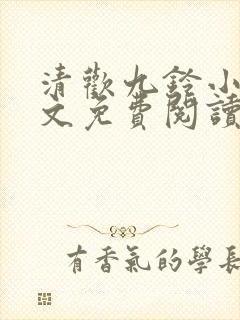 清歡九鈴小
文免費閱讀
有香氣的學長